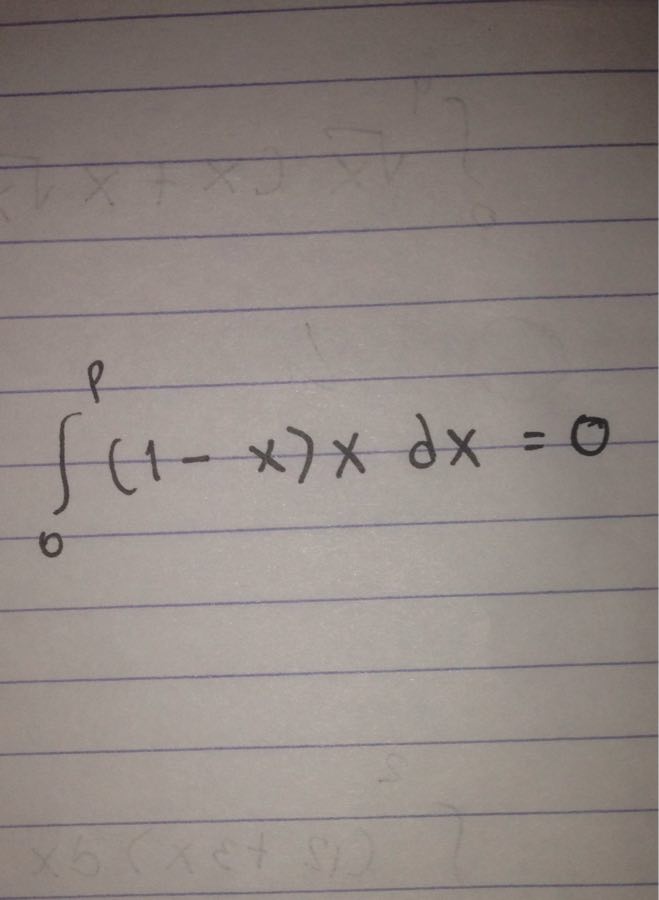 ∫₀ᵖ (1 - x) x dx = 0